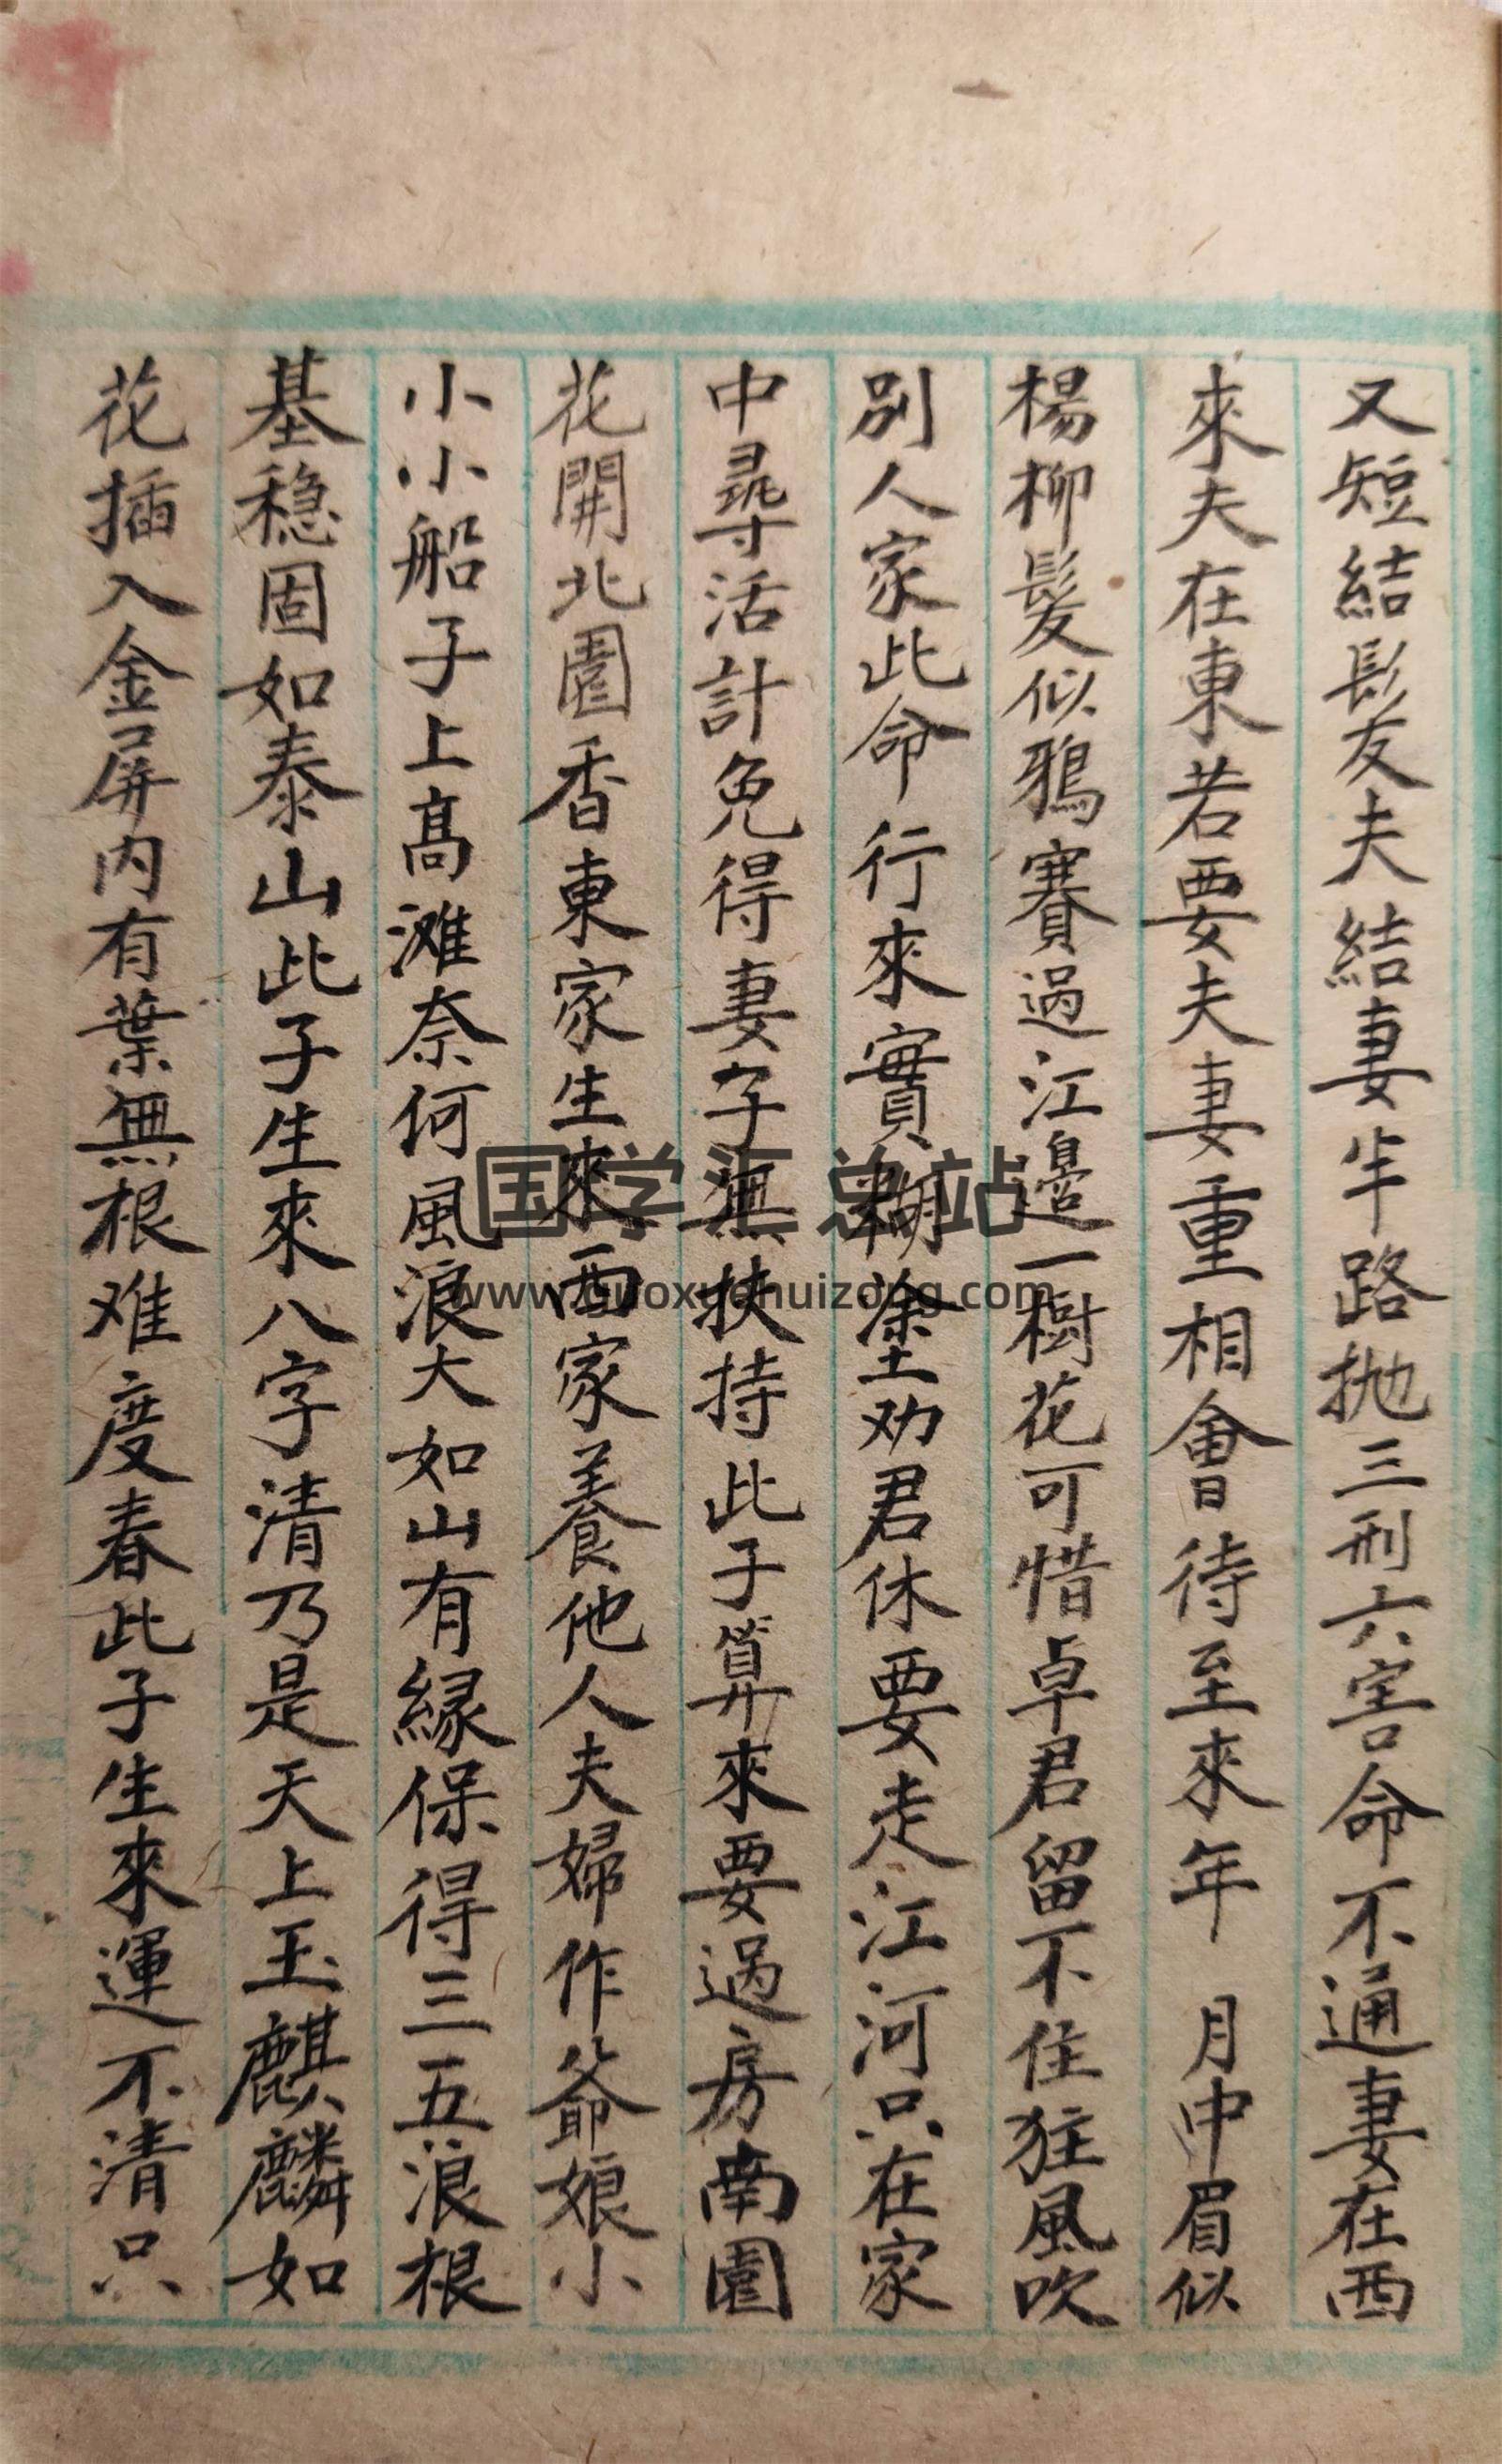 又短結髟友夫結妻半路抛三刑六害命不通妻在西
來夫在東若要夫妻重相會待至來年 月中眉似
楊柳髮似鴉賽過江邊一樹花可惜卓君留不住狂風吹
別人家此命行來實糊塗劝君休要走江河只在家
中尋活計免得妻子無扶持此子算來要過房南園
花開北園香東家生來西家養他人夫婦作爺娘小
小小船子上高滩奈何風浪大如山有緣保得三五浪根
基穏固如泰山此子生來八字清乃是天上玉麒麟如
花插入金屏内有葉無根难度春此子生來運不清只
国学汇总站
www.guoxuehuizong.com